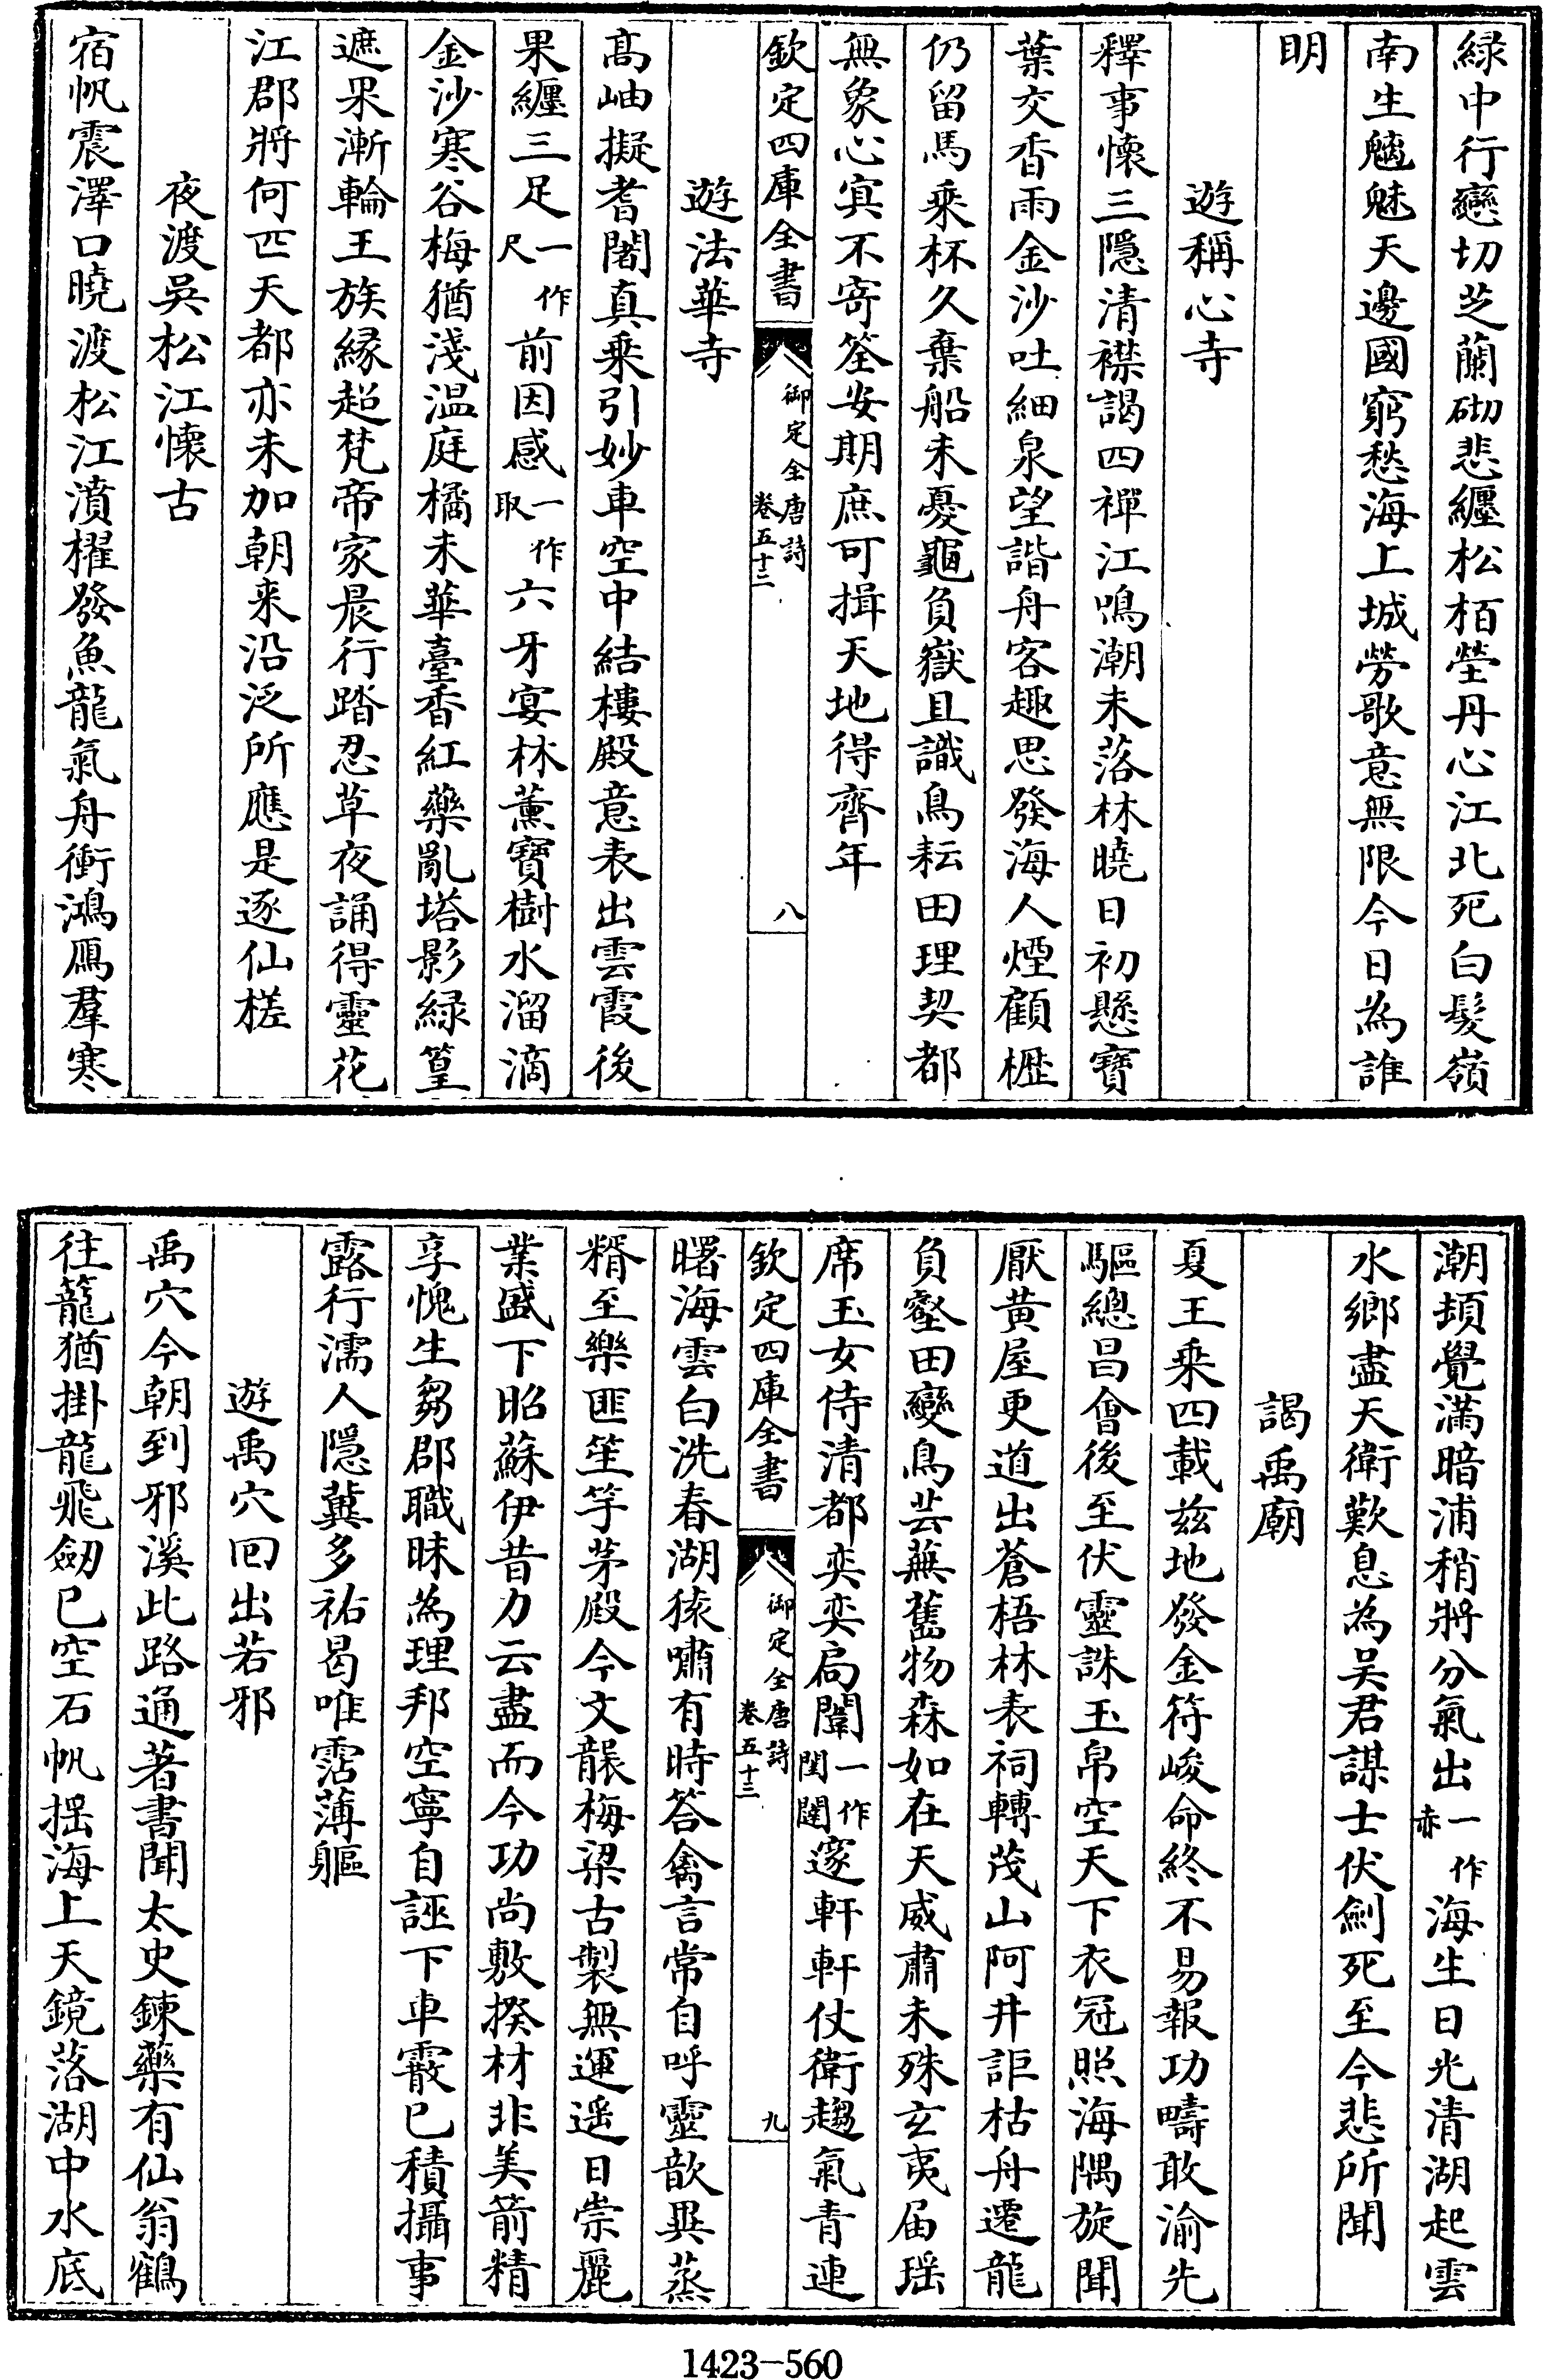 緑中行戀切芝蘭砌悲纒松栢塋丹心江北死白髮嶺
南生魑魅天邊國窮愁海上城勞歌意無限今日為誰
明
遊稱心寺
釋事懷三隱清襟謁四禪江鳴潮未落林曉日初懸寶
葉交香雨金沙吐細泉望諧舟客趣思發海人煙顧櫪
仍留馬乘杯久棄船未憂龜負嶽且識鳥耘田理契都
無象心寘不寄筌安期庶可揖天地得齊年
欽定四庫全書 御定全唐詩 卷五十三 八
遊法華寺
髙岫擬耆闍真乘引妙車空中結樓殿意表出雲霞後
果纒三足一作尺前因感一作取六牙宴林薰寶樹水溜滴
金沙寒谷梅猶淺温庭橘未華臺香紅藥亂塔影緑篁
遮果漸輪王族縁超梵帝家晨行踏忍草夜誦得靈花
江郡將何匹天都亦未加朝来沿泛所應是逐仙槎
夜渡吳松江懷古
宿帆震澤口曉渡松江濆櫂發魚龍氣舟衝鴻鴈羣寒
潮頓覺滿暗浦稍將分氣出一作赤海生日光清湖起雲
水鄉盡天衛歎息為吴君謀士伏劍死至今悲所聞
謁禹廟
夏王乘四載兹地發金符峻命終不易報功疇敢渝先
驅總昌會後至伏靈誅玉帛空天下衣冠照海隅旋聞
厭黄屋更道出蒼梧林表祠轉茂山阿井詎枯舟遷龍
負壑田變鳥芸蕪舊物森如在天威肅未殊玄夷届瑶
席玉女侍清都奕奕扃闈一作閨闥邃軒軒仗衛趨氣青連
欽定四庫全書 御定全唐詩 卷五十三 九
曙海雲白洗春湖猿嘯有時答禽言常自呼靈歆異蒸
糈至樂匪笙竽茅殿今文襲梅梁古製無運遥日崇麗
業盛下昭蘇伊昔力云盡而今功尚敷揆材非美箭精
享愧生芻郡職昧為理邦空寧自誣下車霰已積攝事
露行濡人隱冀多祐曷唯霑薄軀
遊禹穴囘出若邪
禹穴今朝到邪溪此路通著書聞太史鍊藥有仙翁鶴
往籠猶掛龍飛劒已空石帆揺海上天鏡落湖中水底
1423—560